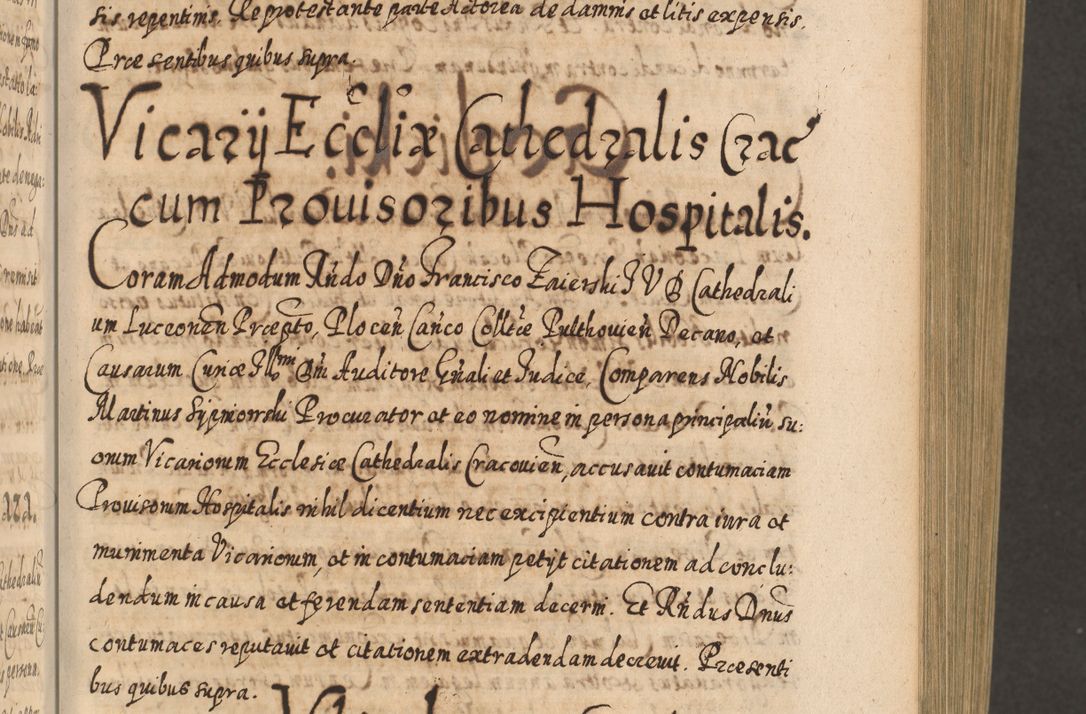 sis repentinis. Reprotestante parte Actorea de damnis et litis expensis.
Præsentibus quibus supra.
Vicarÿ Eccliæ Cathedralis Crac
cum Prouisoribus Hospitalis.
Coram Admodum Rńdo Dńo Francisco Zaierski I V D Cathedrali
um Luceoneń Præpto, Ploceń Cańco Colltæ Pulthouień Decano, et
Causarum Curiæ Illmi Eṕi Auditore Gńali et Iudice, Comparens Nobilis
Martinus Sypniowski Procurator et eo nomine in persona principaliũ su:
orum Vicariorum Ecclesiæ Cathedralis Cracouień, accusauit contumaciam
Prouisorum Hospitalis nihil dicentium nec excipientium contra iura et
munimenta Vicariorum, et in contumaciam petÿt citationem ad conclu:
dendum in causa et ferendam sententiam decerni. Et Rńdus Dnus
contumaces reputauit et citationem extradendam decreuit. Præsenti
bus quibus supra.